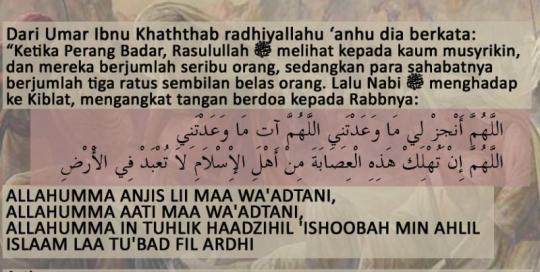 Dari Umar Ibnu Khaththab radhiyallahu ‘anhu dia berkata:
“Ketika Perang Badar, Rasulullah ﷺ melihat kepada kaum musyrikin,
dan mereka berjumlah seribu orang, sedangkan para sahabatnya
berjumlah tiga ratus sembilan belas orang. Lalu Nabi ﷺ menghadap
ke Kiblat, mengangkat tangan berdoa kepada Rabbnya:
اللَّهُمَّ أَنْجِزْ لِي مَا وَعَدْتَنِي اللَّهُمَّ آتِ مَا وَعَدْتَنِي
اللَّهُمَّ إِنْ تُهْلِكْ هَذِهِ الْعِصَابَةَ مِنْ أَهْلِ الْإِسْلَامِ لَا تُعْبَدْ فِي الْأَرْضِ
ALLAHUMMA ANJIS LII MAA WA'ADTANI,
ALLAHUMMA AATI MAA WA'ADTANI,
ALLAHUMMA IN TUHLIK HAADZIHIL 'ISHOOBAH MIN AHLIL
ISLAAM LAA TU'BAD FIL ARDHI